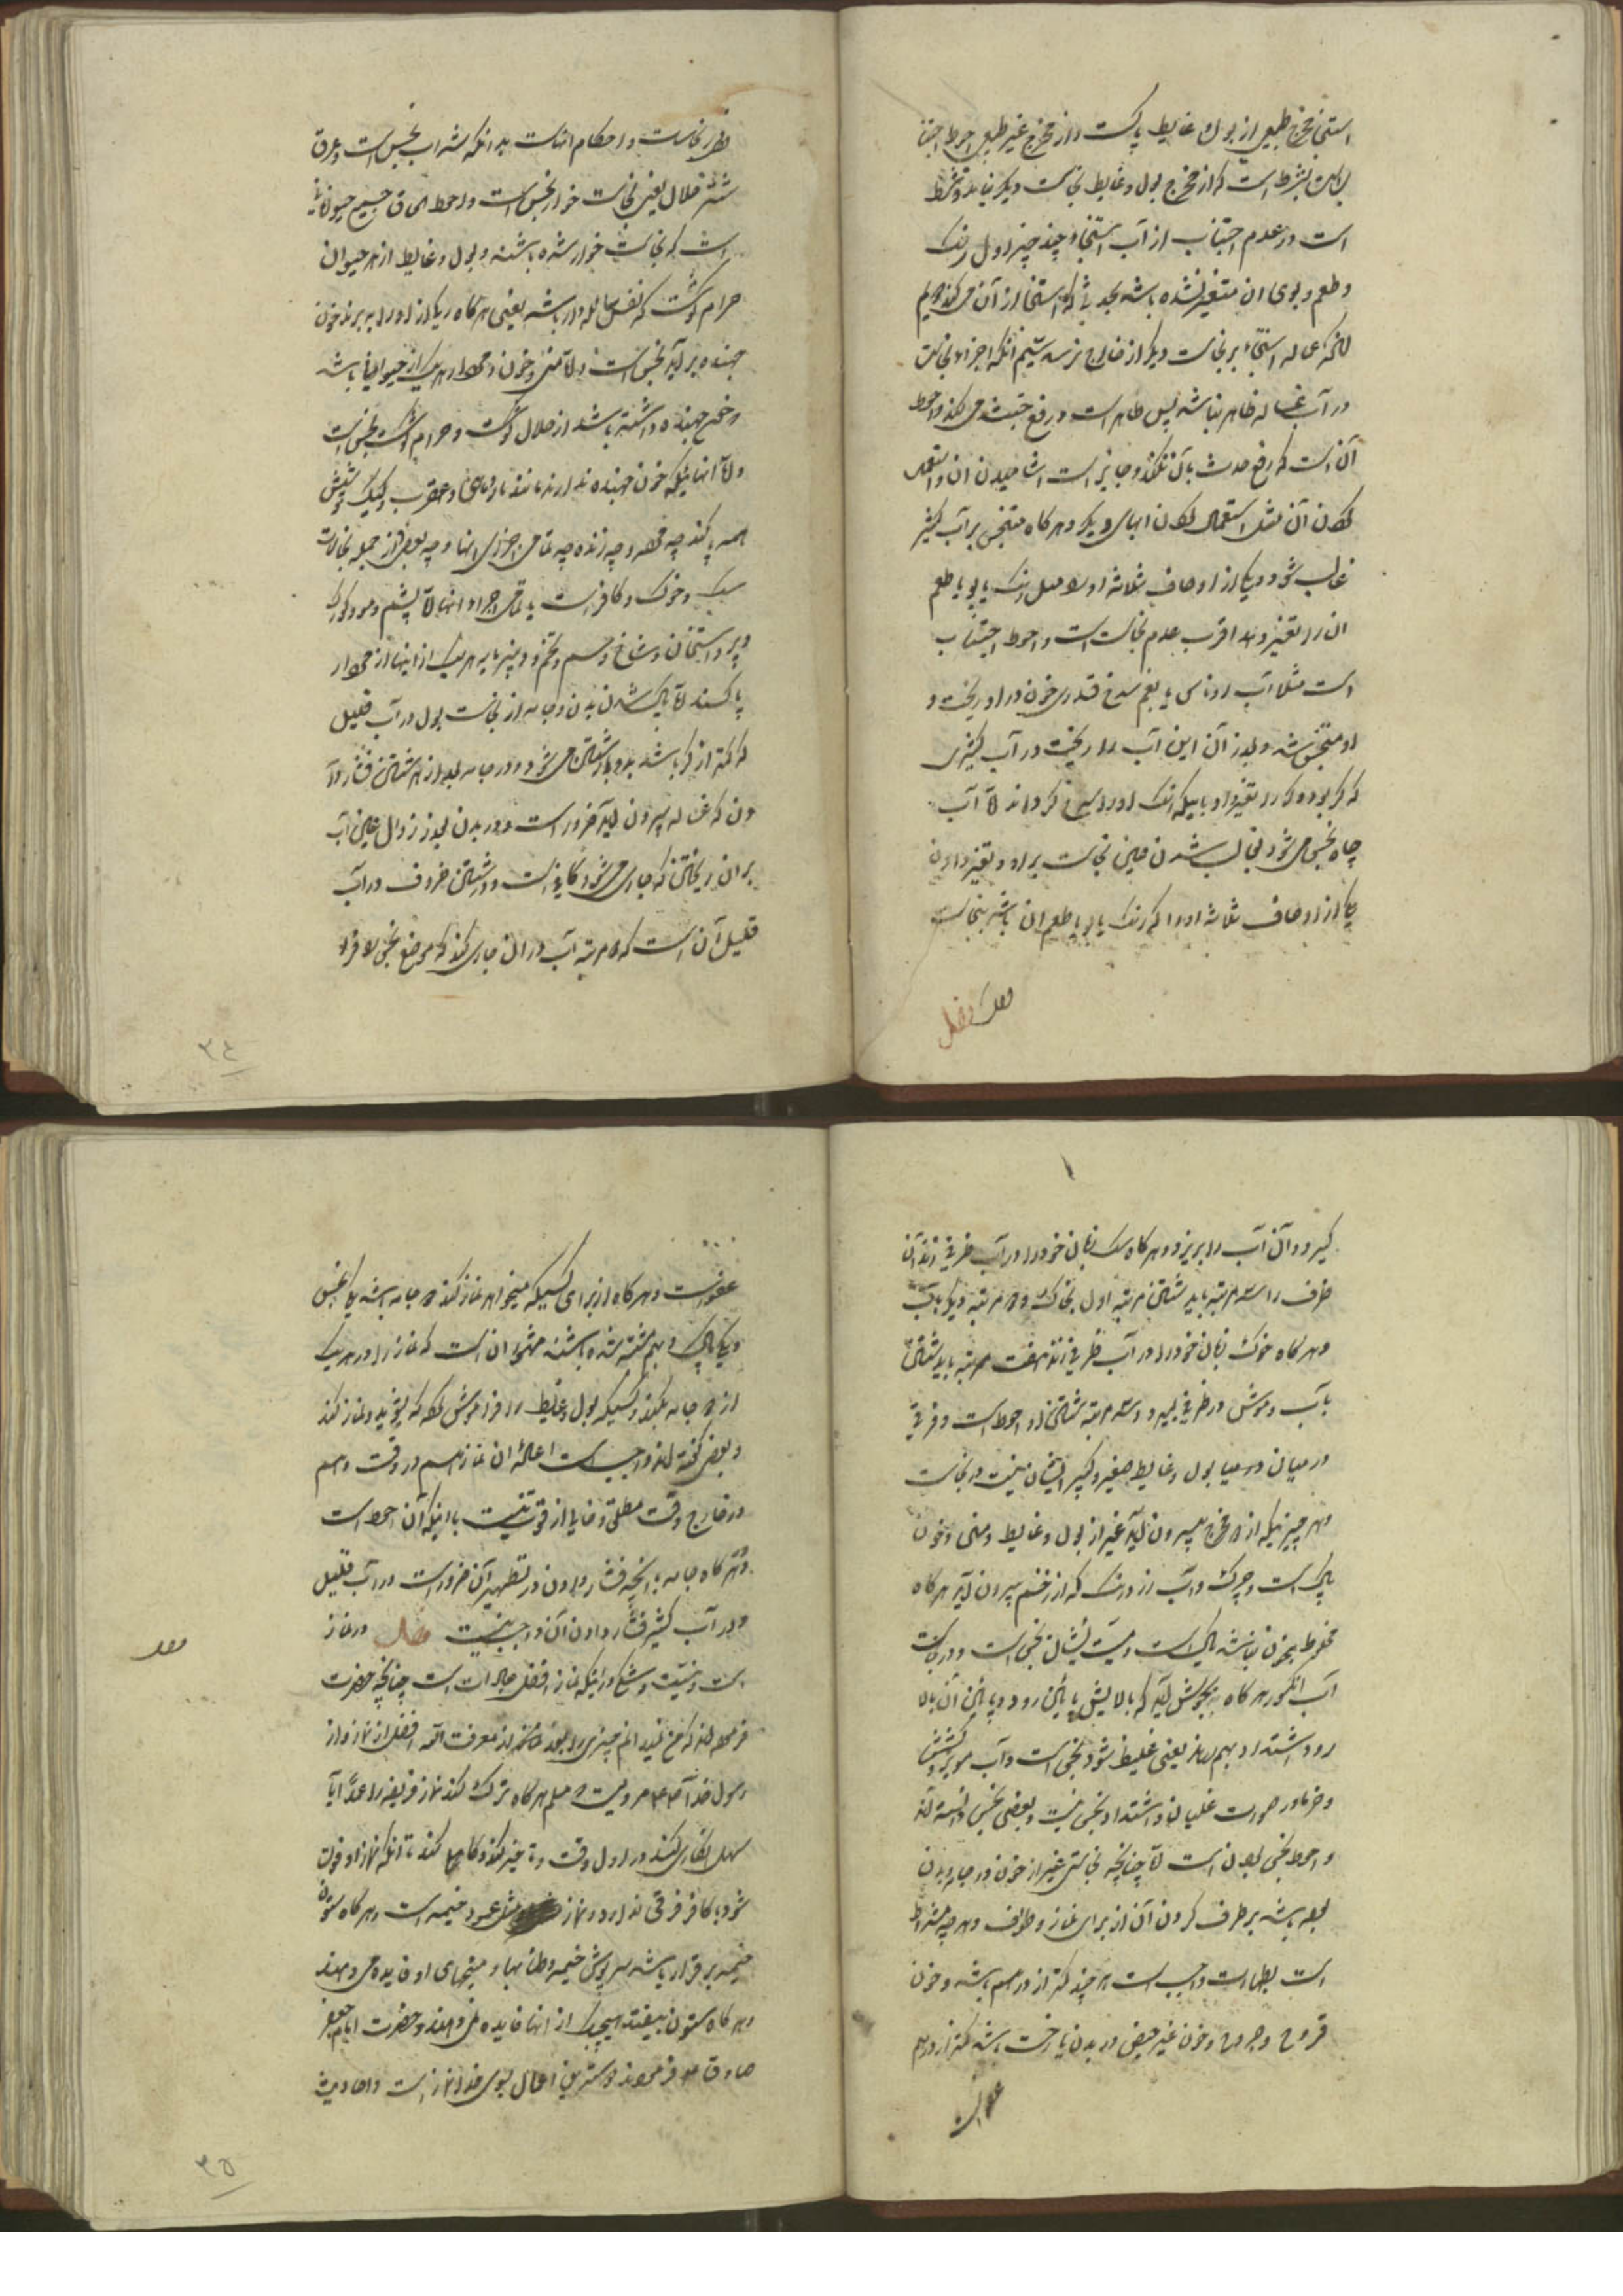 استنجا مخرج طبیعی از بول و غایط پاکست و از مخرج غیر طبیعی احوط اجتنا
است بشرط است که از مخرج بول و غایط نجاست دیگر نیاید و شرط
است در عدم اجتناب از آب استنجا چند چیز اول رنک
و طعم و بوی ان متغیر نشده باشد بحدیثی که استنجا از آن می کند دویم
آنکه غساله استنجاء بر نجاست دیگر از خارج نرسد سیم آنکه اجزاء نجاست
در آب غساله ظاهر نباشد پس طاهر است و رفع خبث می کند و احوط
آن است که رفع حدث بآن نکند و جایز است اشامیدن ان و استعمال
کردن آن مثل استعمال کردن ابهای دیگر و هر کاه متنجس بر آب کثیر
غالب شود و یکی از اوصاف ثلاثه او مثل رنک یا بو یا طعم
ان را تغییر دهد اقرب عدم نجاست است و احوط اجتناب
است مثلا آب روناس یا بقم سرخ قدری خون در او ریخت و
او متنجس شد و بعد از آن این آب را ریخت در آب کثیری
که کر بود و کر را تغییر داد با اینکه رنک او را سرخ کرداند الا آب
چاه نجس می شود بغالب شدن عین نجاست بر او و تغییر دادن
یکی از اوصاف ثلاثه او را که رنک یا بو یا طعم ان باشد بنجاست
فصل
در نجاسات و احکام انهاست بدانکه شراب نجس است و عرق
شتر جلال یعنی نجاست خوار نجس است و احوط عرق جمیع حیوانات
است که نجاست خوار شده باشند و بول و غایط از هر حیوان
حرام کوشت که نفس سائله دار باشد یعنی هر کاه رک از او را ببرند خون
جهنده بر آید نجس است و الا منی و خون و مردار هر یک از حیوانیکه باشد
و خون جهنده داشته باشد از حلال کوشت و حرام کوشت نجس است
و الا انهائیکه خون جهنده ندارند مانند مار و ماهی و عقرب و کیک و شپش
همه پاکند چه مرده و چه زنده چه تمامی اجزای انها و چه بعضی از جمله نجاسات
سک و خوک و کافر است با تمامی اجزاء انها الا پشم و مو و کرک
و پر و استخوان و شاخ و سم و تخم و پنیر مایه هر یک از اینها از مردار
پاکست الا پاک شدن بدن و جامه از نجاست بول در آب قلیل
که کمتر از کر باشد بدو بار شستن می شود و در جامه بعد از هر شستن فشار دا
دن که غساله بیرون آید ضرور است و در بدن بعد از زوال عین آب
بر ان ریختن که جاری می شود کافیست و در شستن ظروف در آب
قلیل آن است که سه مرتبه آب در ان جاری کند که موضع نجس را فرا
۳۴
کیرد و آن آب را بریزد و هر کاه سک زبان خود را در آب ظرفی زند آن
ظرف را سه مرتبه باید شستن مرتبه اول بخاک و دو مرتبه دیگر بآب
و هر کاه خوک زبان خود را در آب ظرفی زند هفت مرتبه باید شستن
بآب و موش در ظرفی بمیرد سه مرتبه شستن او احوط است و فرقی
در میان بول و غایط صغیر و کبیر انسان نیست در نجاست
و هر چیزیکه از دو مخرج بیرون آید غیر از بول و غایط و منی و خون
پاک است و چرک و آب زرد رنک که از زخم بیرون آید هر کاه
مخلوط بخون نباشد پاک است و میت انسان نجس است و در نجاست
آب انکور هر کاه بجوش آید که بالایش پائین رود و پائین آن بالا
رود و اشتداد بهم رساند یعنی غلیظ شود نجس است و آب مویز و کشمش
و خرما در صورت غلیان و اشتداد نجس نیست و بعضی نجس دانسته اند
و احوط نجس بودن است الا چنانچه نجاستی غیر از خون در جامه و بدن
بوده باشد بر طرف کردن آن از برای نماز و طواف و هر چه مشروط
است بطهارت واجب است هر چند کمتر از درهم باشد و خون
قروح و جروح و خون غیر حیض در بدن یا رخت باشد کمتر از درهم
عفو است
عفو است و هر کاه از برای کسیکه میخواهد نماز کند دو جامه باشد یکی نجس
و یکی پاک و بهم مشتبه شده باشند مشهور ان است که نماز را در هر یک
از دو جامه بکند و کسیکه بول و غایط را فراموش کرده که بشوید و نماز کند
و بعضی گفته اند واجب است اعاده ان نماز هم در وقت و هم
در خارج وقت مطلق و خالی از قوت نیست با اینکه آن احوط است
و هر کاه جامه یا انچه فشار دادن در تطهیر آن ضرور است در آب قلیل
و در آب کثیر فشار دادن آن واجب نیست فصل در نماز
است و نیست شکی در اینکه نماز افضل عبادات است چنانچه حضرت
فرموده اند که من نمیدانم چیزی را بعد از معرفت الله افضل از نماز و از
رسول خدا مرویست که مسلم هر کاه ترک کند نماز فریضه را عمداً یا
سهل انکاری کند در اول وقت و تاخیر کند و کاهلی کند تا آنکه نماز او فوت
شود با کافر فرقی ندارد و نماز مثل عمود خیمه است هر کاه ستون
خیمه بر قرار باشد سرپوش خیمه و طنابها و میخهای او فایده می دهند
و هر کاه ستون بیفتد هیچیک از انها فایده نمی دهند و حضرت امام جعفر
صادق فرموده دوسترین اعمال بسوی خدا نماز است و احادیث
۳۵